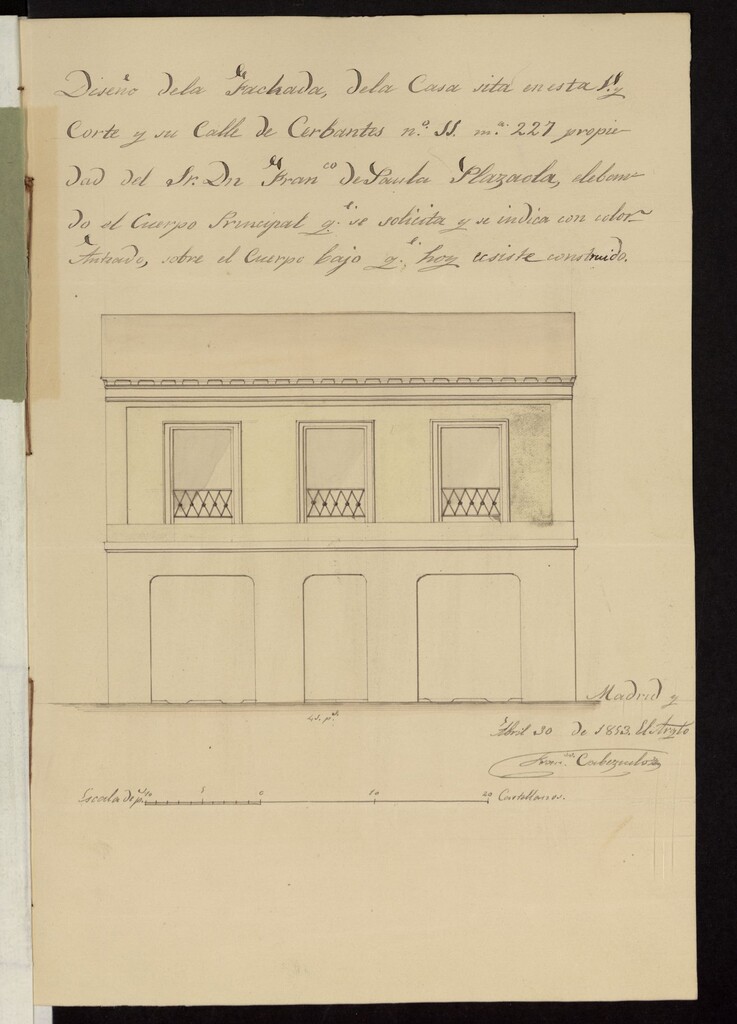 Diseño dela Fachada, dela Casa sita en esta V.ª y
Corte y su Calle de Cerbantes n.º 11. m.ª 227 propie-
dad del Sr. Dn Fran.co de Paula Plazaola, eleban-
do el Cuerpo Principal q.e se solicita y se indica con color
Anteado, sobre el Cuerpo bajo q.e hoy esiste construido.
Madrid y
Abril 30 de 1853. El Arqto
Fran.co Cabezuelo
Escala de p.s 10 5 0 10 20 Castellanos.